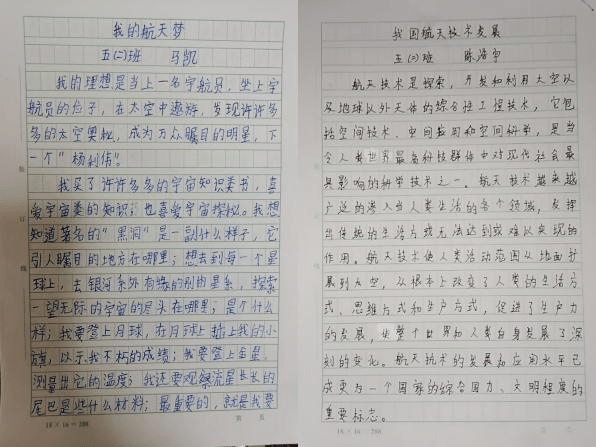 我的航天梦
五(二)班 马凯
我的理想是当上一名宇航员，坐上宇
航员的位子，在太空中遨游，发现许许多
多的太空奥秘，成为万众瞩目的明星，下
一个“杨利伟”。
我买了许许多多的宇宙知识类书，喜
爱宇宙类的知识；也喜爱宇宙探秘。我想
知道著名的“黑洞”是一副什么样子，它
引人瞩目的地方在哪里；想去到每一个星
球上，去银河系外有缘的别的星系，探索
一望无际的宇宙的尽头在哪里；是个什么
样；我要登上月球，在月球上插上我的小
旗，以示我不朽的成绩；我要登上金星，
测量出它的温度；我还要观察流星长长的
尾巴是些什么材料；最重要的，就是我要
18×16=288
第 页
我国航天技术发展
五(二)班 陈浩宇
航天技术是探索，开发和利用太空以
及地球以外天体的综合性工程技术，它包
括空间技术、空间应用和空间科学，是当
今人类世界最高科技群体中对现代社会最
具影响的科学技术之一。航天技术越来越
广泛的渗入当人类生活的各个领域，发挥
出传统的生活方或无法达到或难以实现的
作用。航天技术使人类活动范围从地面扩
展到太空，从根本上改变了人类的生活方
式、思维方式和生产方式，促进了生产力
的发展，使整个世界和人类自身发展了深
刻的变化。航天技术的发展和应用水平已
成更为一个国家的综合国力、文明程度的
重要标志。
18×16=288
第 页
装
订
线